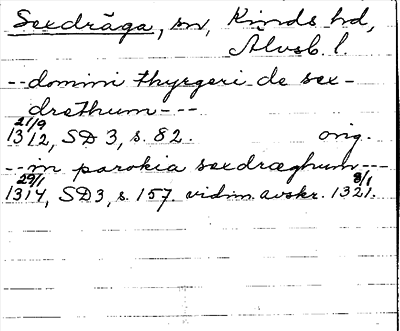 Sexdräga, sn, Kinds hd,
Älvsb. l.
-- domini thyrgeri de sex-
drethum ---
21/9
1312, SD 3, s. 82. orig.
-- in parokia sexdræghum ---
29/1 8/1
1314, SD3, s. 157. vidim. avskr. 1321.